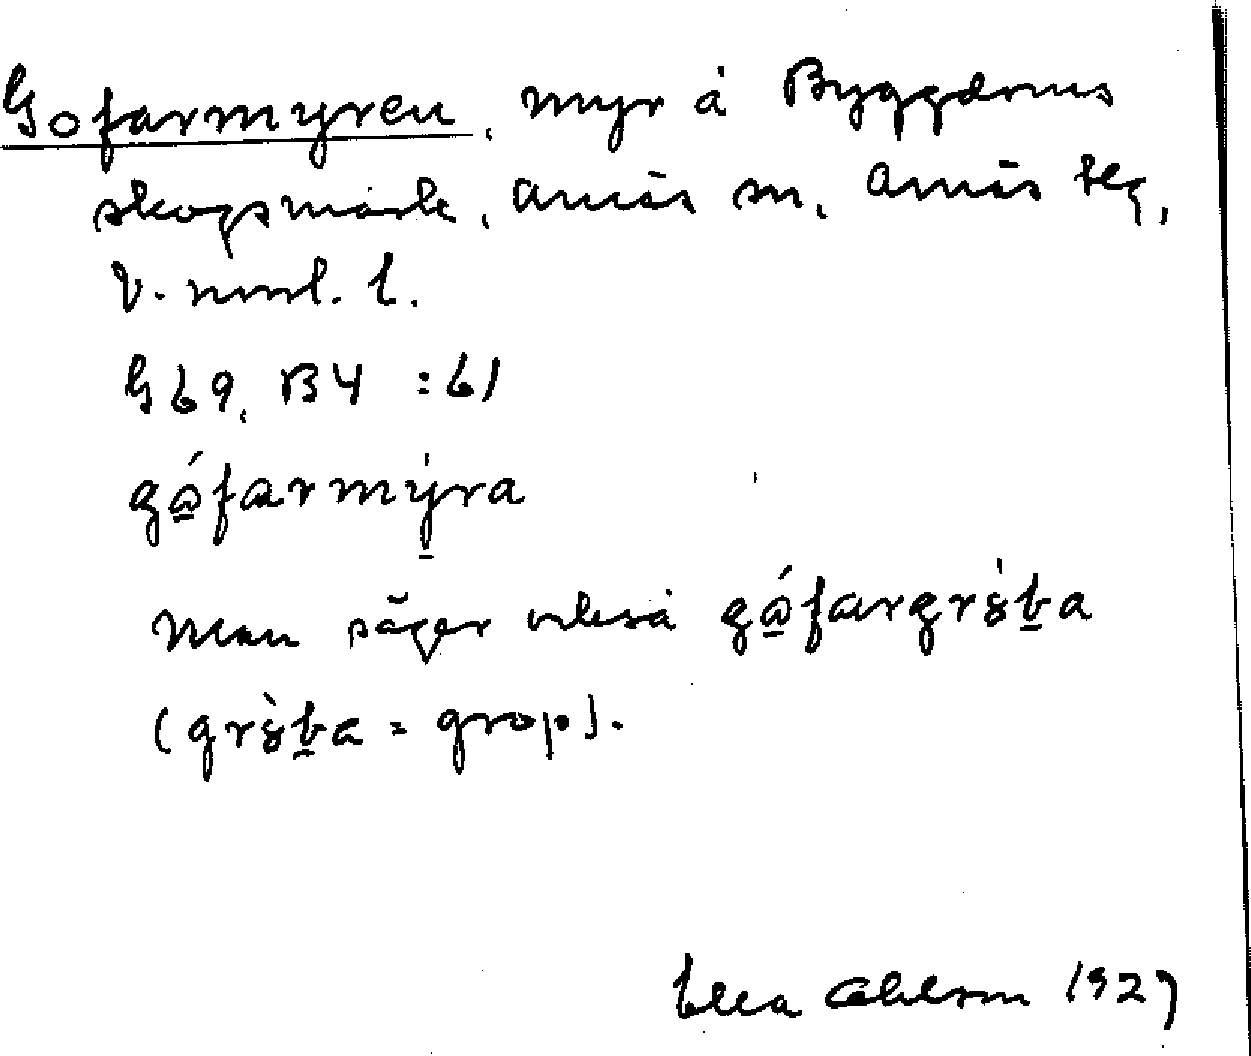 Gofarmyren, myr å Byggdens
skogsmark, Arnäs sn, Arnäs tlg,
V. norrl. l.
G69, B4 :61
gá̱farmy̱̍ra
Man säger också gá̱fargrò̱ba
(grò̱ba = grop).
Ella Ohlson 1927